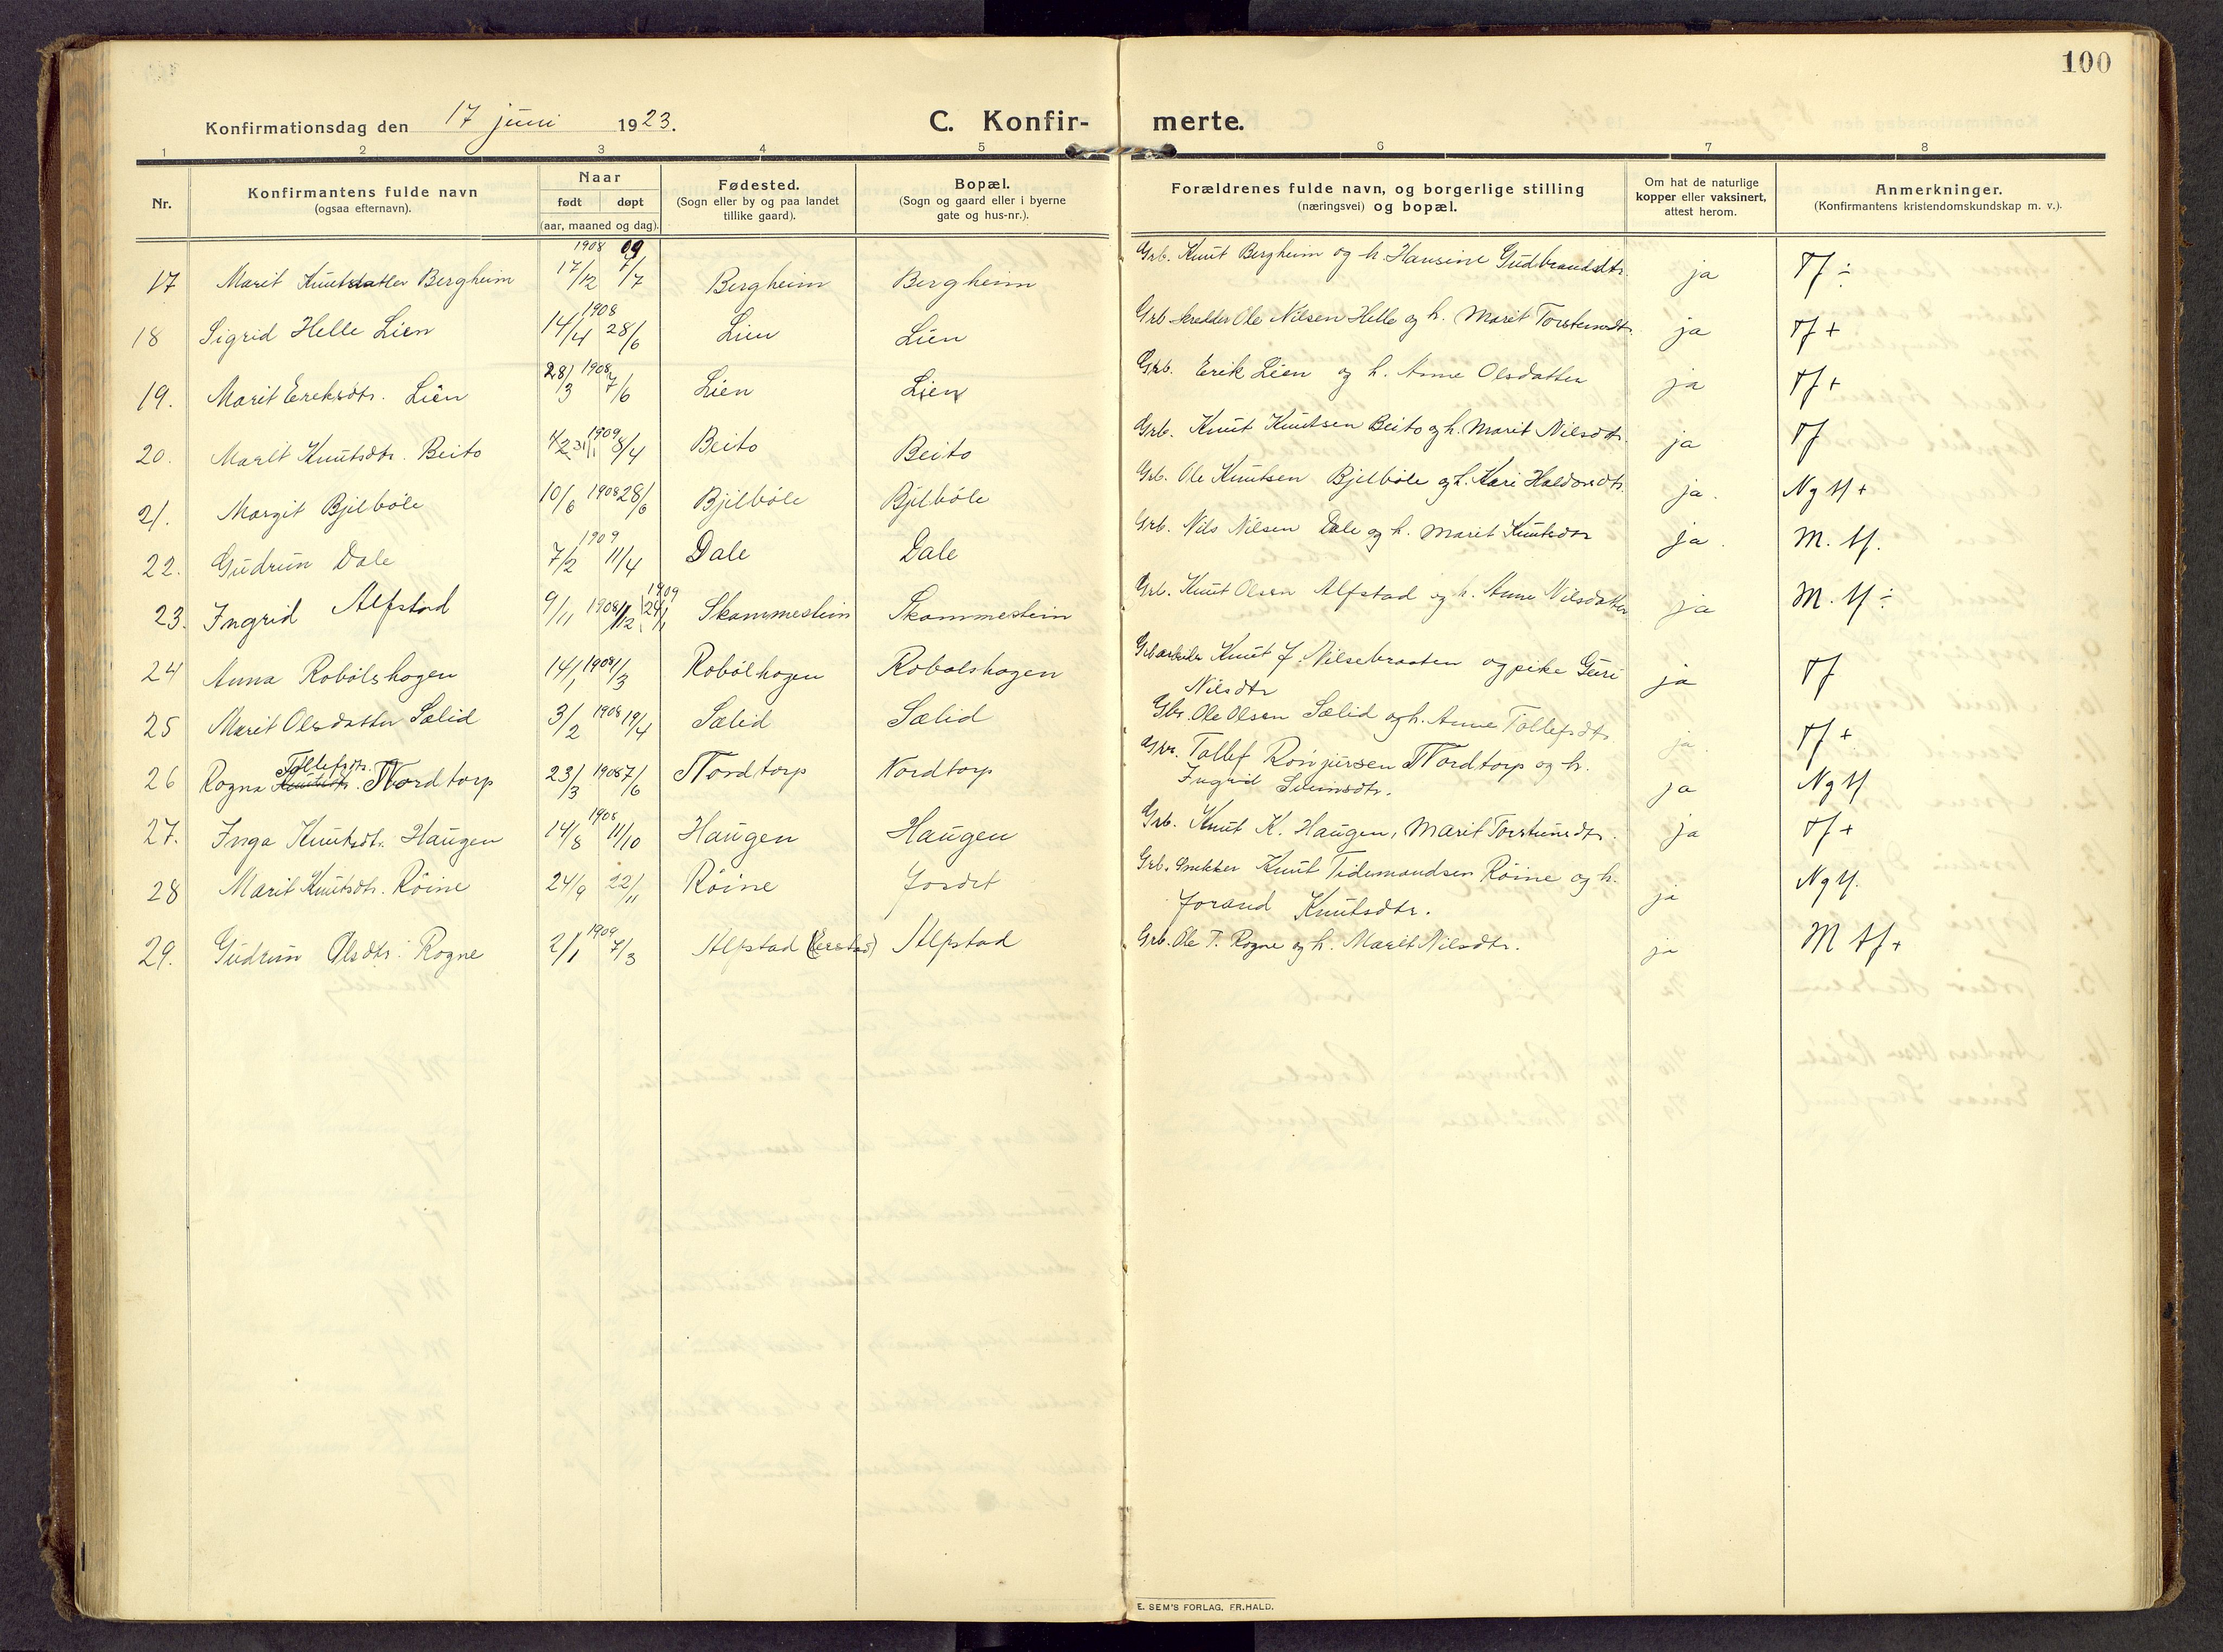 100
Konfirmationsdag den 17 juni 1923.
C. Konfir- merte.
1 2 3 4 5 6 7 8
Nr.
Konfirmantens fulde navn
(ogsaa efternavn).
Naar
født døpt
(aar, maaned og dag).
Fødested.
(Sogn eller by og paa landet
tillike gaard).
Bopæl.
(Sogn og gaard eller i byerne
gate og hus-nr.).
Forældrenes fulde navn, og borgerlige stilling
(næringsvei) og bopæl.
Om hat de naturlige
kopper eller vaksinert,
attest herom.
Anmerkninger.
(Konfirmantens kristendomskundskap m. v.).
1908 09
17 Marit Knutsdatter Bergheim 17/12 7/7 Bergheim Bergheim Grb. Knut Bergheim og h. Hansine Gudbrandsdtr. ja Tf ÷
1908
18 Sigrid Helle Lien 14/4 28/6 Lien Lien Grb skredder Ole Nilsen Helle og h. Marit Torsteinsdtr. ja Tf +
19. Marit Eriksdtr. Lien 28/3 1908 7/6 Lien Lien Grb. Erik Lien og h. Anne Olsdatter ja Tf +
1909
20. Marit Knutsdtr. Beito 31/1 8/4 Beito Beito Grb. Knut Knutsen Beito og h. Marit Nilsdtr. ja Tf
21. Margit Bjelbøle 10/6 1908 28/6 Bjelbøle Bjelbøle Grb. Ole Knutsen Bjelbøle og h. Kari Haldorsdtr. ja. Ng tf +
1909
22. Gudrun Dale 7/2 11/4 Dale Dale Grb. Nils Nilsen Dale og h. Marit Knutsdtr ja. M. tf.
1909
23. Ingrid Alfstad 9/11 1908 24/1 Skammestein Skammestein Grb. Knut Olsen Alfstad og h. Anne Nilsdatter ja M. tf ÷
24 Anna Robølshagen 14/1 1908 1/3 Robølhagen Robølshagen Grb arbeider Knut J. Nilsebraaten og pike Guri
Nilsdtr ja Tf
25 Marit Olsdatter Sælid 3/2 1908 19/4 Sælid Sælid Gbr. Ole Olsen Sælid og h. Anne Tollefsdtr. ja Tf +
Tollefsdtr.
26 Rogna Knutsdtr. Nordtorp 23/3 1908 7/6 Nordtorp Nordtorp Gbr. Tollef Ronjursen Nordtorp og h.
Ingrid Sveinsdtr. ja Ng tf
1908
27. Inga Knutsdtr. Haugen 14/8 11/10 Haugen Haugen Grb. Knut K. Haugen, Marit Torsteinsdtr. ja Tf +
28 Marit Knutsdtr. Røine 24/9 22/11 Røine Jordet Grb. Snekker Knut Tidemandsen Røine og h.
Jorand Knutsdtr. ja Ng tf.
1909
29. Gudrun Olsdtr. Rogne 2/1 7/3 Alfstad Alfstad Grb. Ole T. Rogne og h. Marit Nilsdtr. ja M tf +
E. SEM'S FORLAG, FR.HALD.